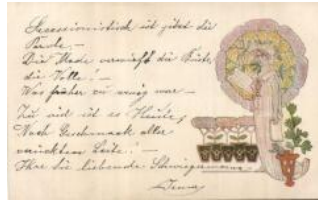 Secessionistisch ist jetzt die
Parole. —
Die Mode verwirft die Büste
die Volle! —
Was früher zu wenig war —
Zu viel ist es Heute,
Nach Geschmack aller
verückten Leute! —
Ihre Sie liebende Schwieger